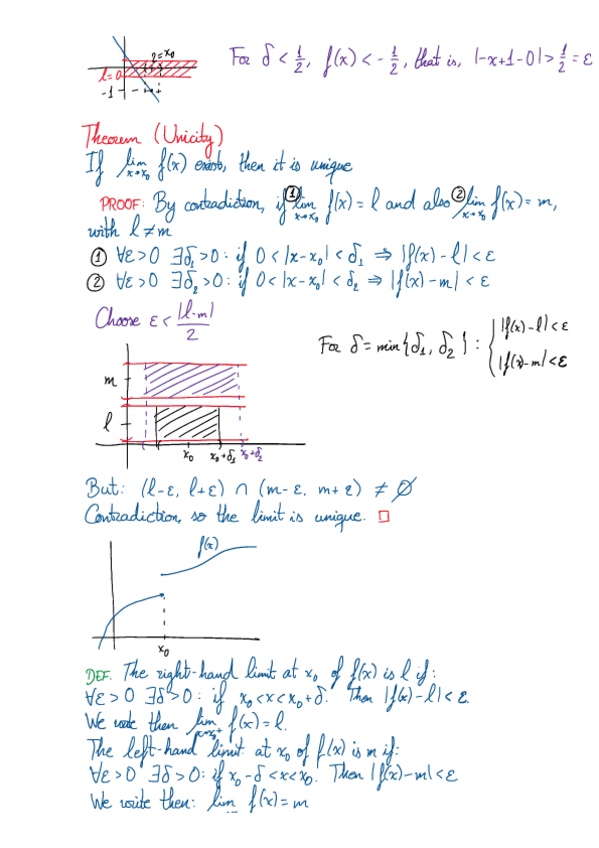 2=x₀
For δ < 1/2, f(x) < -1/2, that is, |-x+1-0| > 1/2 = ε
l=0
-1
Theorem (Unicity)
If lim x→x₀ f(x) exists, then it is unique
PROOF: By contradiction, if ① lim x→x₀ f(x) = l and also ② lim x→x₀ f(x) = m,
with l ≠ m
① ∀ε>0 ∃δ₁>0: if 0<|x-x₀|<δ₁ ⇒ |f(x)-l|<ε
② ∀ε>0 ∃δ₂>0: if 0<|x-x₀|<δ₂ ⇒ |f(x)-m|<ε
Choose ε < |l-m|/2
For δ = min{δ₁, δ₂}: { |f(x)-l|<ε
|f(x)-m|<ε
m
l
x₀ x₀+δ₁ x₀+δ₂
But: (l-ε, l+ε) ∩ (m-ε, m+ε) ≠ ∅
Contradiction, so the limit is unique. □
f(x)
x₀
DEF. The right-hand limit at x₀ of f(x) is l if:
∀ε>0 ∃δ>0: if x₀<x<x₀+δ. Then |f(x)-l|<ε.
We write then lim x→x₀⁺ f(x)=l.
The left-hand limit at x₀ of f(x) is m if:
∀ε>0 ∃δ>0: if x₀-δ<x<x₀. Then |f(x)-m|<ε
We write then: lim f(x)=m